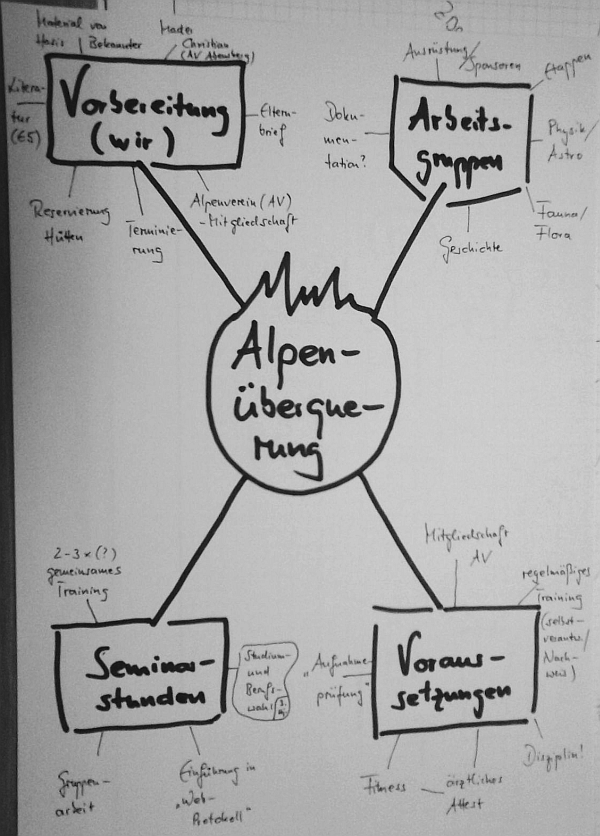 Material von
Hasis | Bekannter
Mader
Christian
(AV Abensberg)
Litera-
tur
(€5)
Vorbereitung
(wir)
Eltern-
brief
Reservierung
Hütten
Terminie-
rung
Alpenverein (AV)
-Mitgliedschaft
Ausrüstung/
Sponsoren
Etappen
Doku-
men-
tation?
Arbeits-
gruppen
Physik/
Astro
Fauna/
Flora
Geschichte
Alpen-
überque-
rung
2-3 x (?)
gemeinsames
Training
Seminar-
stunden
Studium-
und
Berufs-
wahl
Gruppen-
arbeit
Einführung in
„Web-
Protokoll"
Mitgliedschaft
AV
regelmäßiges
Training
(selbst-
verantw./
Nach-
weis)
„Aufnahme-
prüfung"
Voraus-
setzungen
Disziplin!
Fitness
ärztliches
Attest